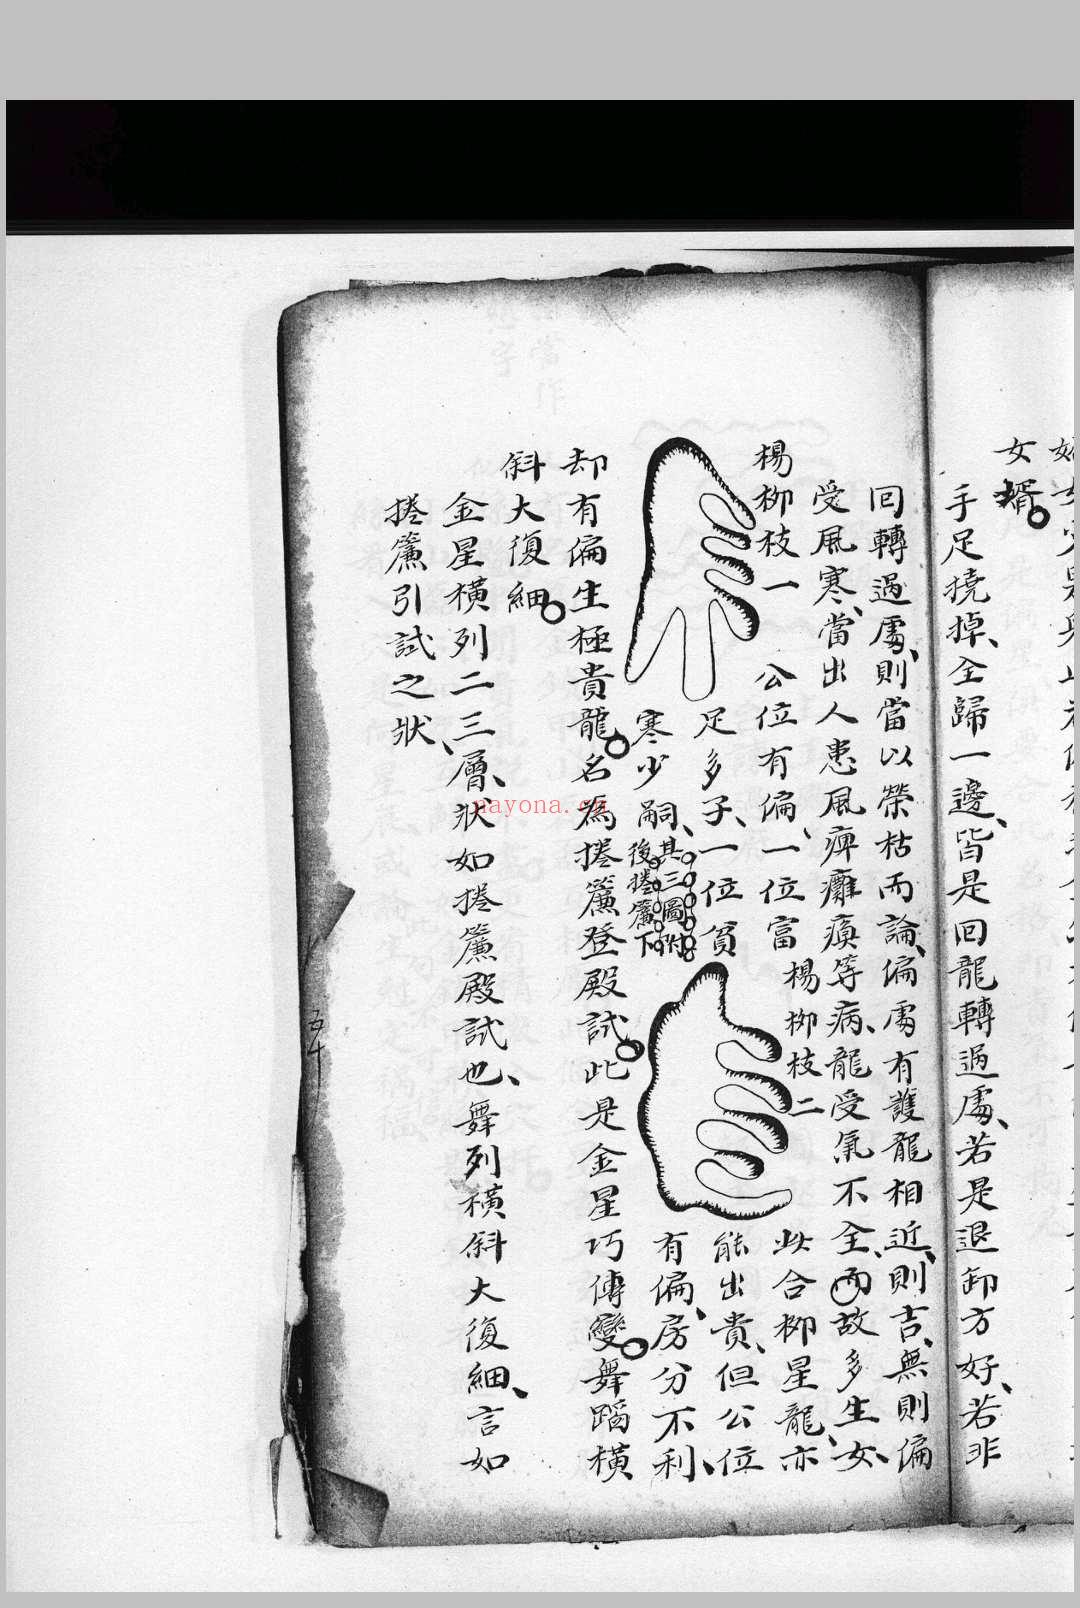 女婿
手足撓掉、全歸一邊、皆是回龍轉過處、若是退卸方好、若非
回轉過處、則當以榮枯而論、偏處有護龍相近、則吉、無則偏
受風寒、當出人患風痺癱瘓等病、龍受氣不全、而故多生女、
楊柳枝一
公位有偏、一位富
足多子、一位貧
寒少嗣、
其三圖附
後捲簾下
楊柳枝二
此合柳星龍、亦
能出貴、但公位
有偏、房分不利、
却有偏生極貴龍。名為捲簾登殿試。此是金星巧傳變。舞蹈橫
斜大復細。
金星橫列二三層、狀如捲簾殿試也、舞列橫斜大復細、言如
捲簾引試之狀、
五十
nayona.cn